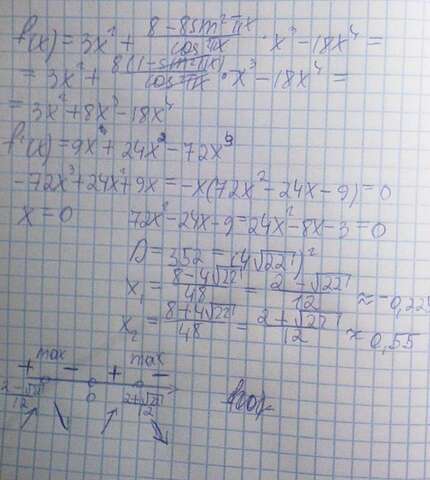 f(x) = 3x² + (8-8sin²πx)/(cos²πx) · x³ - 18x⁴ =
= 3x² + (8(1-sin²πx))/(cos²πx) · x³ - 18x⁴ =
= 3x² + 8x³ - 18x⁴
f'(x) = 9x + 24x² - 72x³
-72x³ + 24x² + 9x = -x(72x² - 24x - 9) = 0
x = 0 72x² - 24x - 9 = 24x² - 8x - 3 = 0
D = 352 = (4√22)²
x₁ = (8 - 4√22)/48 = (2 - √22)/12 ≈ -0,22
x₂ = (8 + 4√22)/48 = (2 + √22)/12 ≈ 0,55
+ max - + max -
(2-√22)/12 0 (2+√22)/12